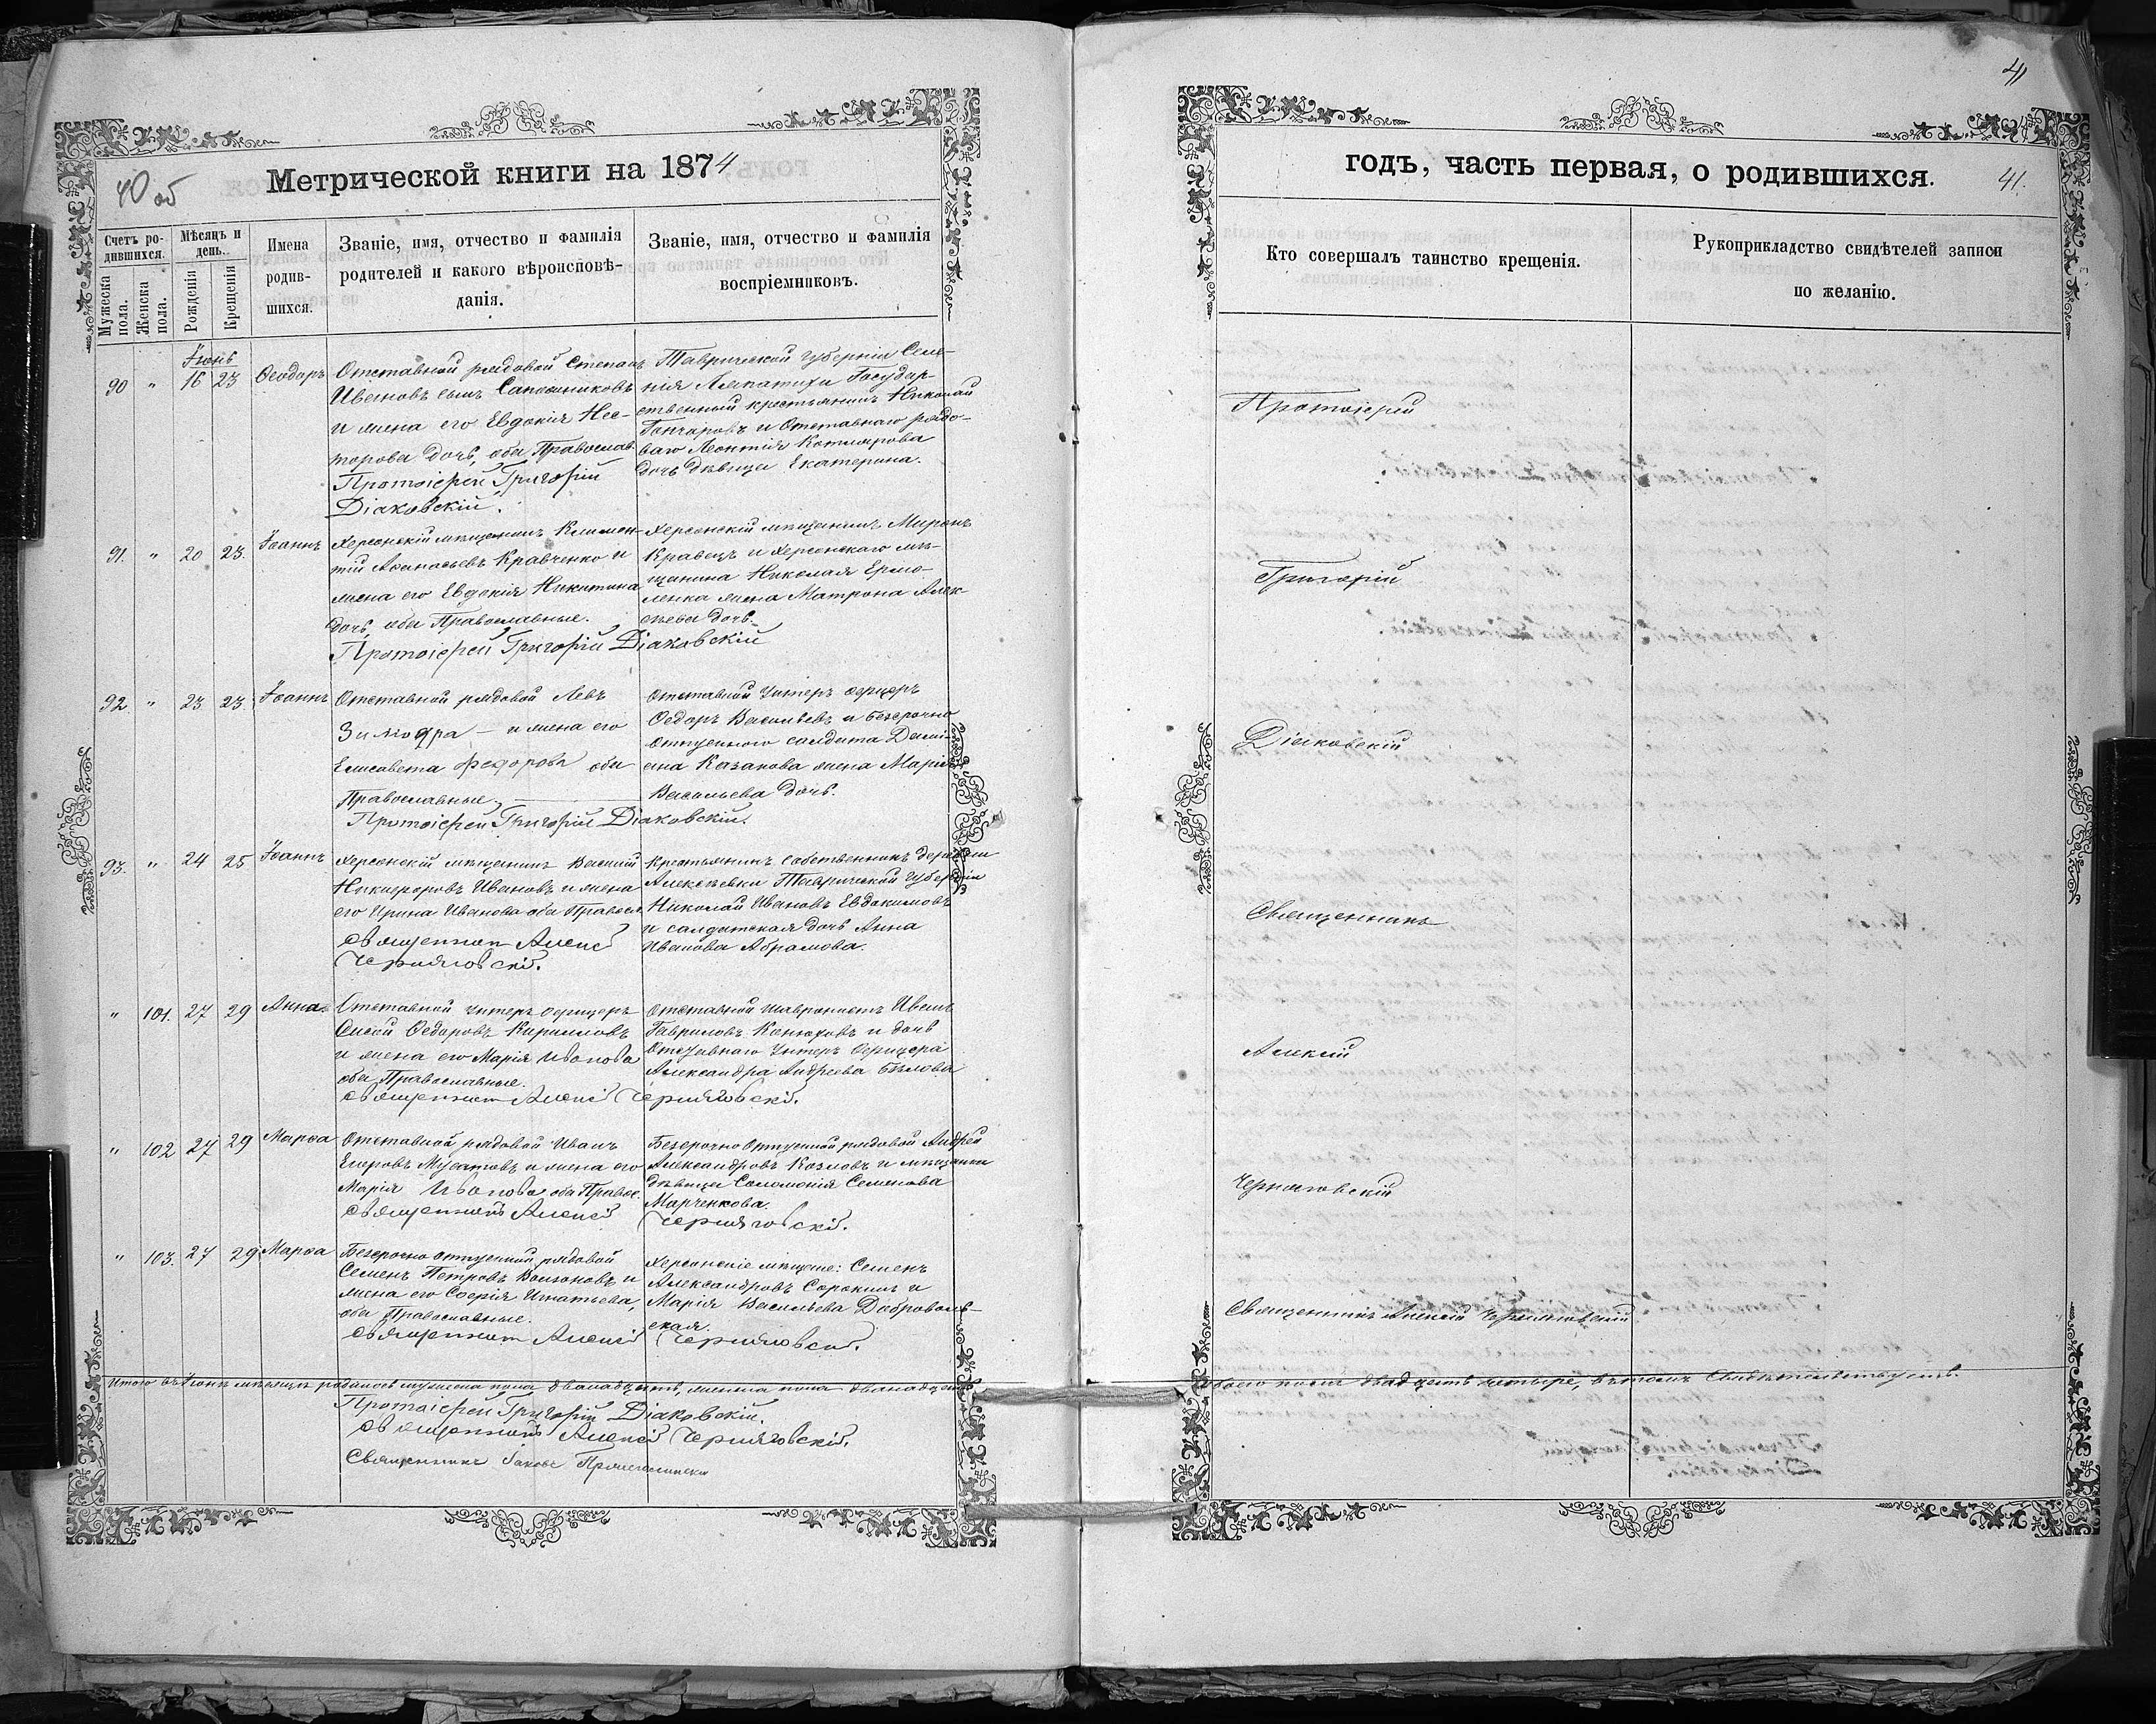 41
40 об
Метрической книги на 1874
годъ, часть первая, о родившихся.
41.
Счетъ ро-
дившихся.
Мужеска
пола.
Женска
пола.
Мѣсяцъ и
день.
Рожденія
Крещенія
Имена
родив-
шихся.
Званіе, имя, отчество и фамилія
родителей и какого вѣроисповѣ-
данія.
Званіе, имя, отчество и фамилія
воспріемниковъ.
Кто совершалъ таинство крещенія.
Рукоприкладство свидѣтелей записи
по желанію.
Іюнь
90 " 16 23 Ѳеодоръ
Отставной рядовой Степанъ
Ивановъ сынъ Сапожниковъ
и жена его Евдокія Нес-
торова дочь, оба Православ.
Протоіерей Григорій
Діаковскій.
Таврической губерніи Селе-
нія Лепатихи Государ-
ственный крестьянинъ Николай
Гончаровъ и Отставнаго рядо-
ваго Леонтія Котлярова
дочь дѣвица Екатерина.
Протоіерей
91. " 20 23. Іоаннъ
Херсонскій мѣщанинъ Климен-
тій Аѳанасьевъ Кравченко и
жена его Евдокія Никитина
дочь, оба Православные.
Протоіерей Григорій Діаковскій
Херсонскій мѣщанинъ Миронъ
Кравецъ и Херсонскаго мѣ-
щанина Николая Ермо-
ленка жена Матрона Алек-
сѣева дочь.
Григорій
92. " 23 23. Іоаннъ
Отставной рядовой Левъ
и жена его
Елисавета Федорова оба
Православные,
Протоіерей Григорій Діаковскій.
Отставный Унтеръ Офицеръ
Ѳедоръ Васильевъ и безсрочно
отпускного солдата Дамі-
ана Казакова жена Марія
Васильева дочь.
Діаковскій
93. " 24 25 Іоаннъ
Херсонскій мѣщанинъ Василій
Никифоровъ Ивановъ и жена
его Ирина Иванова оба Правосл.
Священник Алексій
Черняговскій.
Крестьянинъ собственникъ деревни
Алексѣевки Таврической Губерніи
Николай Ивановъ Евдокимовъ
и солдатская дочь Анна
Иванова Абрамова.
Священникъ
" 101. 27 29 Анна
Отставной Унтеръ Офицеръ
Сисой Ѳедоровъ Кирилловъ
и жена его Марія Иванова
оба Православные.
Священникъ Алексій Черняговскій.
Отставной Иванъ
Гавриловъ Конюховъ и дочь
Отставнаго Унтеръ Офицера
Александра Андреева Бѣлова
Алексій
" 102 27 29 Марѳа
Отставной рядовой Иванъ
Егоровъ Мусатовъ и жена его
Марія Иванова оба Правос.
Священникъ Алексій
Безсрочно Отпускной рядовой Андрей
Александровъ Козловъ и мѣщанка
дѣвица Соломонія Семенова
Марченкова.
Черняговскій.
Черняговскій
" 103. 27 29 Марѳа
Безсрочно отпускной рядовой
Семенъ Петровъ и
жена его Софія Игнатьева,
оба Православные.
Священникъ Алексій Черняговскій.
Херсонскіе мѣщане: Семенъ
Александровъ Сорокинъ и
Марія Васильева Доброволь-
ская.
Священникъ Алексій Черняговскій
Итого въ Іюнѣ мѣсяцѣ родилось мужеска пола двѣнадцать, женска пола двѣнадцать
обоего пола двадцать четыре, въ томъ Свидѣтельствуемъ.
Протоіерей Григорій Діаковскій.
Священникъ Алексій Черняговскій.
Священникъ Іаковъ